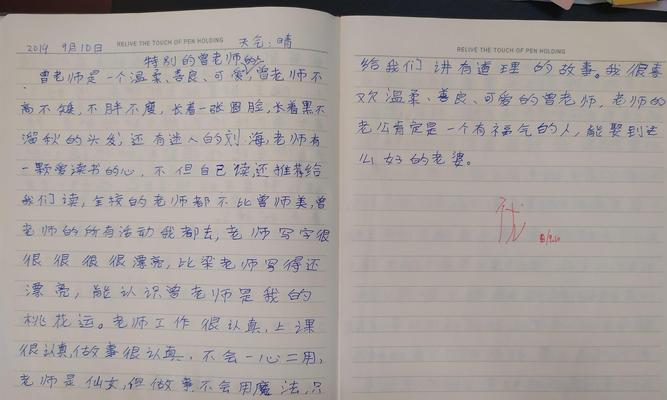 RELIVE THE TOUCH OF PEN HOLDING
2019 9月10日 天气:晴
特别的曾老师
曾老师是一个温柔、善良、可爱,曾老师不
高不矮,不胖不廋,长着一张圆脸,长着黑不
溜秋的头发,还有迷人的刘海,老师有
一颗爱读书的心,不但自己读还推荐给
我们读,全校的老师都不比曾师美,曾
老师的所有活动我都去,老师写字很
很很很很漂亮,比梁老师写得还
漂亮,能认识曾老师是我的
桃花运。老师工作很认真,上课
很认真,做事很认真,不会一心二用,
老师是仙女,但做事不会用魔法,只
RELIVE THE TOUCH OF PEN HOLDING
给我们讲有道理的故事。我很喜
欢温柔、善良、可爱的曾老师,老师的
老公肯定是一个有福气的人,能娶到这
么好的老婆。
优